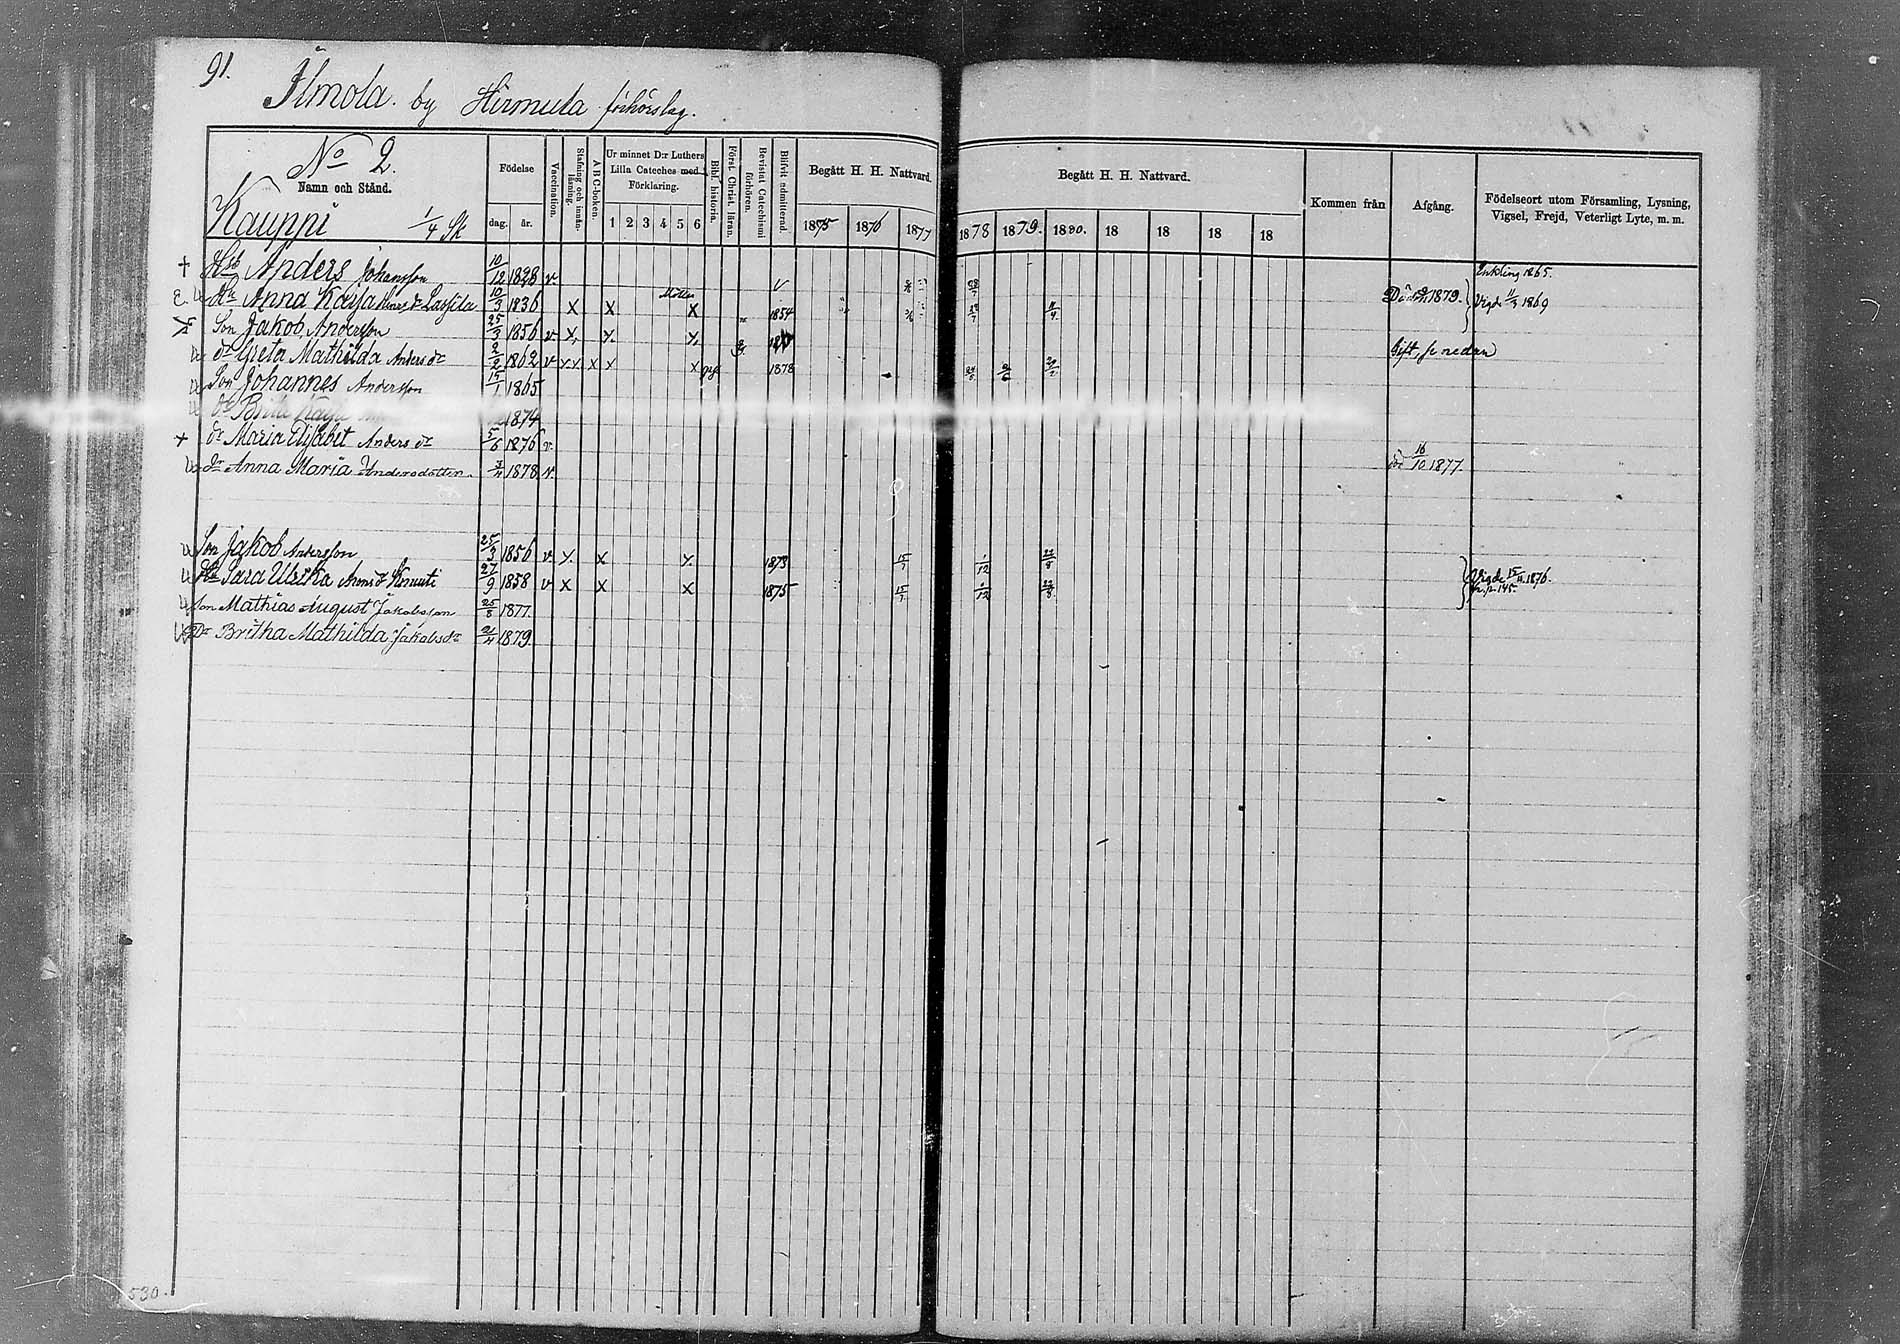 91.
Ilmola by Hirmula förhörslag.
No 2.
Namn och Stånd.
Kauppi 1/4 Sk
Födelse
dag. år.
Vaccination.
Stafning och innanläsning.
A B C-boken.
Ur minnet D:r Luthers Lilla Cateches med Förklaring.
1 2 3 4 5 6
Bibl. historia.
Först. Christ. läran.
Bevistat Catechismi förhören.
Blifvit admitterad.
Begått H. H. Nattvard.
1875 1876 1877
Begått H. H. Nattvard.
1878 1879. 1880. 18 18 18 18
Kommen från
Afgång.
Födelseort utom Församling, Lysning, Vigsel, Frejd, Veterligt Lyte, m. m.
† Hsb Anders Johansson 10/12 1828 v. Enkling 1865.
Hu Anna Kaisa 10/3 1836 X X X 1854 1879. Vigde 11/3 1869
Son Jakob Andersson 25/3 1856 v. Gift, se nedan
dr Greta Mathilda Anders dr 2/2 1862 v x x x x x 1878
Son Johannes Andersson 15/1 1865
dr Brita Kajsa 1874
+ dr Maria Elisabet Anders dr 5/6 1876 v. död 16/10 1877.
dr Anna Maria Andersdotter. 3/4 1878 v.
Son Jakob Andersson 25/3 1856 v. x x x 1873 15/7 1/12
Hu Sara Ulrika 27/9 1858 v x x x 1875 15/7 1/12 Vigde 15/11 1876.
Son Mathias August Jakobsson 25/8 1877.
Dr Britha Mathilda Jakobsdr 2/4 1879.
530.